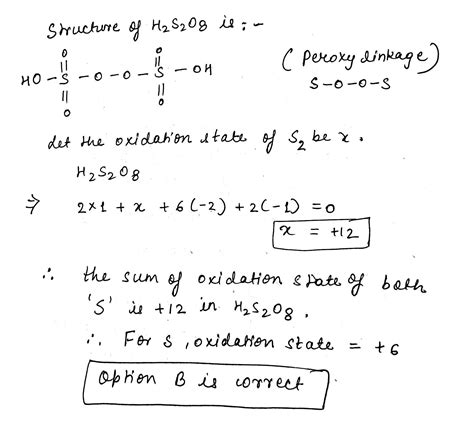 Structure of H₂S₂O₈ is :-
O O
|| ||
HO - S - O - O - S - OH
|| ||
O O
(Peroxy linkage)
S-O-O-S
let the oxidation state of S₂ be x.
H₂S₂O₈
⇒ 2×1 + x + 6(-2) + 2(-1) = 0
x = +12
∴ the sum of oxidation state of both
'S' is +12 in H₂S₂O₈.
∴ For S, oxidation state = +6
Option B is correct